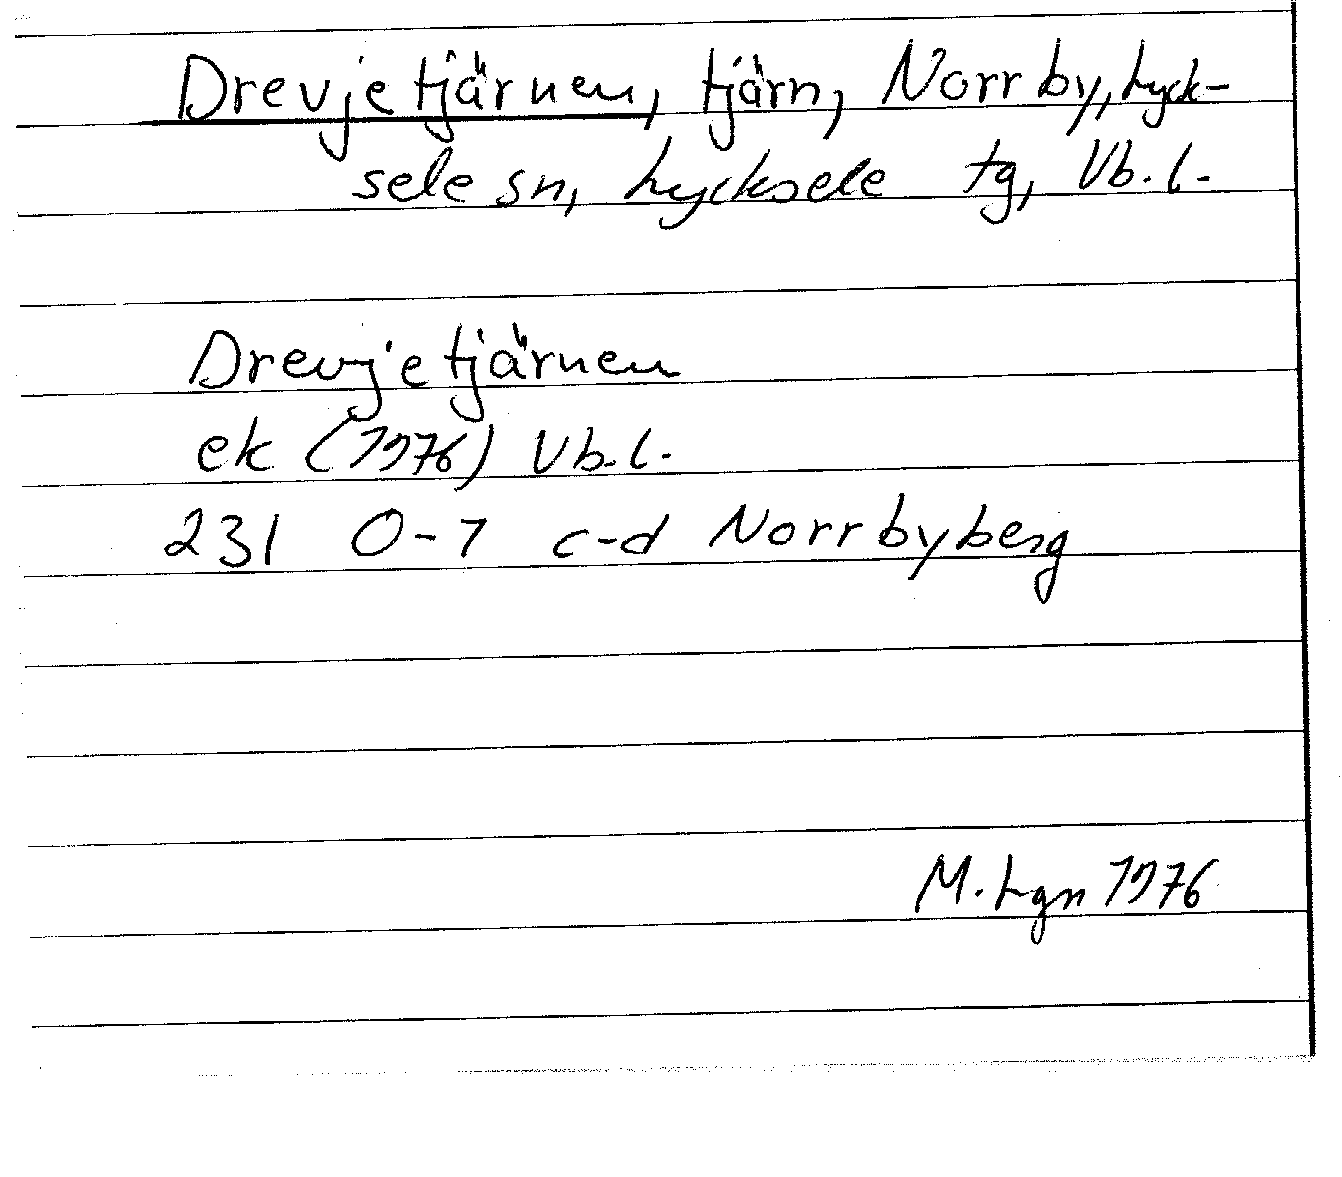 Drevjetjärnen, tjärn, Norrby, Lyck-
sele sn, Lycksele tg, Vb. l.
Drevjetjärnen
ek (1976) Vb. l.
231 0-1 c-d Norrbyberg
M. Lgn 1976